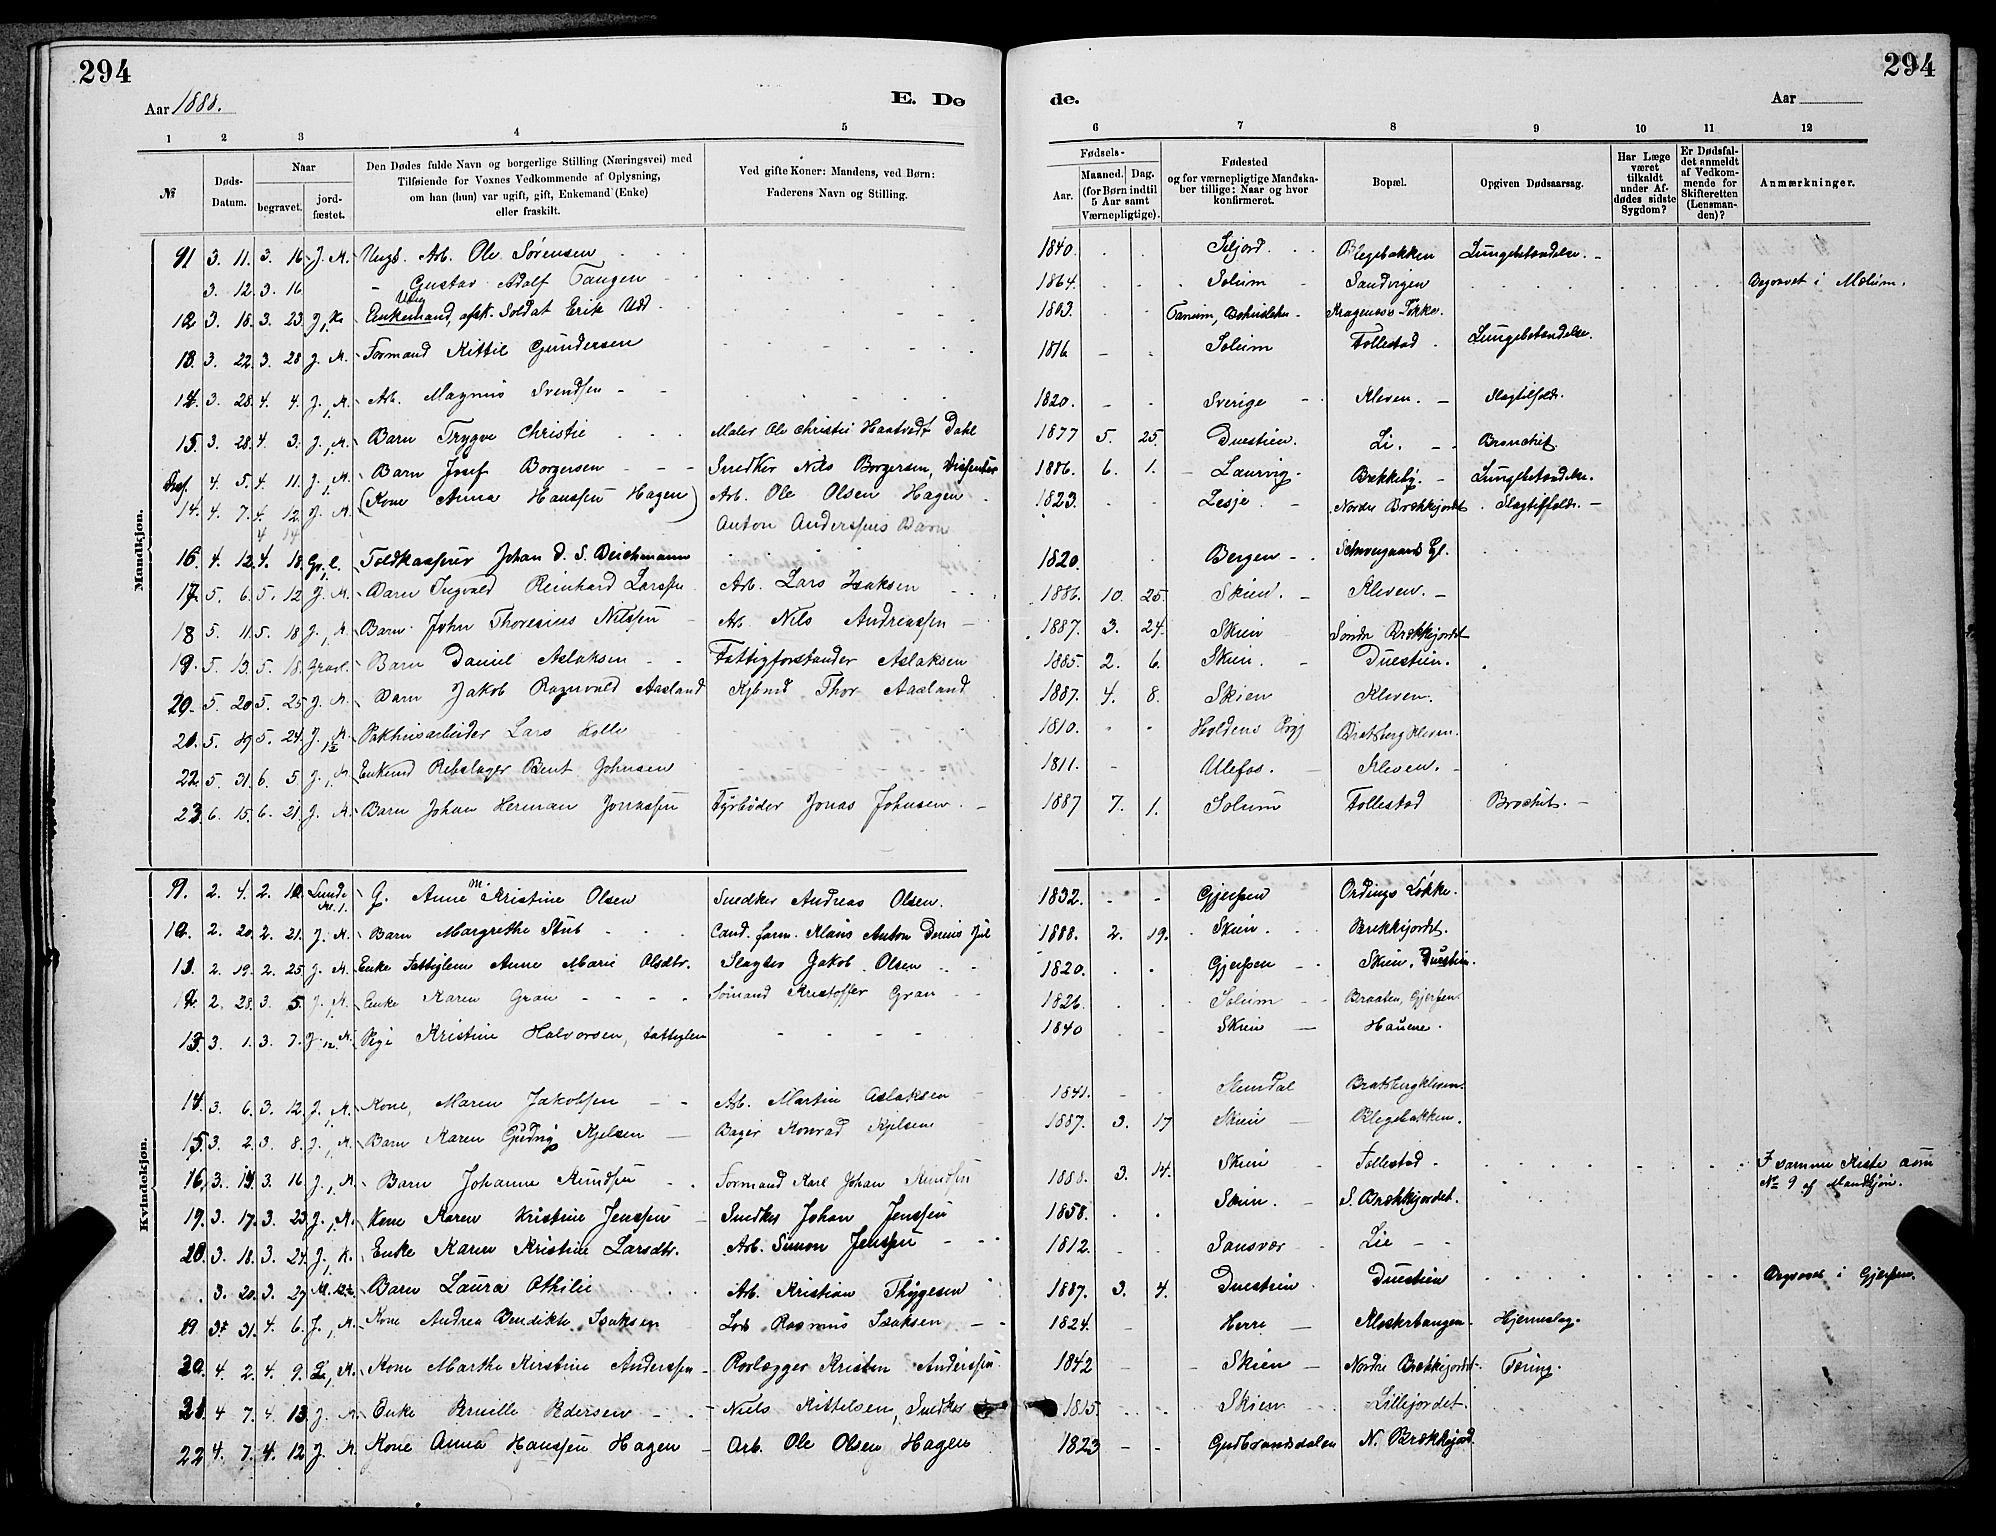 294
294
Aar 1888.
E. Dø
de.
Aar
1 2 3 4 5 6 7 8 9 10 11 12
№
Døds-Datum.
Naar
begravet.
jord-fæstet.
Den Dødes fulde Navn og borgerlige Stilling (Næringsvei) med
Tilføiende for Voxnes Vedkommende af Oplysning,
om han (hun) var ugift, gift, Enkemand (Enke)
eller fraskilt.
Ved gifte Koner: Mandens, ved Børn:
Faderens Navn og Stilling.
Fødsels-
Aar.
Maaned. Dag.
(for Børn indtil
5 Aar samt
Værnepligtige).
Fødested
og for værnepligtige Mandska-
ber tillige: Naar og hvor
konfirmeret.
Bopæl.
Opgiven Dødsaarsag.
Har Læge
været
tilkaldt
under Af-
dødes sidste
Sygdom?
Er Dødsfal-
det anmeldt
af Vedkom-
mende for
Skifteretten
(Lensman-
den)?
Anmærkninger.
Mandkjøn.
11 3. 11. 3. 16 J. K. Ungk. Arb. Ole Sørensen 1840. Siljord. Blegebakken Lungebetændelse.
3. 12 3. 16 Gustav Adolf Tangen 1864. Solum Sandvigen Begravet i Mælum.
12 3. 18. 3. 23 J, K. Enkemand, afsk. Soldat Erik Udd 1803. Tanum, Bohuslehn Kragenæs Løkke.
13. 3. 22 3. 28 J. K. Formand Kittil Gundersen 1816 Solum Follestad Lungebetændelse.
14 3. 28. 4. 4. J, K. Arb. Magnus Svendsen 1820. Sverige Kleven. Slagtilfælde.
15 3. 28 4. 3. J, K. Barn Trygve Christie Maler Ole Christie Haatvedt Dahl 1877 5. 25. Duestien. Li. Bronchit.
4. 5. 4. 11. J, K. Barn Josef Borgersen Snedker Nils Borgersen, Dissenter 1886. 6. 1. Laurvig. Brekkeby. Lungebetændelse.
14. 4. 7. 4. 12 J. K. (Kone Anna Hanssen Hagen) Arb. Ole Olsen Hagen 1823. Lesje. Nordre Brækkejordet Slagtilfælde.
4 14 Anton Anderssens Barn
16. 4. 12. 4. 18. Gr. l. Toldkasserer Johan D. S. Deichmann 1820. Bergen Schweigaards Gd.
17. 5. 6. 5. 12 J. K. Barn Ingvald Reinhard Larssen Arb. Lars Isaksen 1886. 10. 25. Skien. Kleven.
18 5. 11. 5. 18 J, K. Barn John Thoresius Nilssen Arb. Nils Andreassen 1887. 3. 24. Skien Søndre Brekkejordet
19. 5. 13. 5. 18. Gravl. Barn Daniel Aslaksen Fattigforstander Aslaksen 1885. 2. 6. Skien. Duestien.
20. 5. 20 5. 25 J. K. Barn Jakob Ragnvald Aasland Kjbmd Thor Aasland 1887. 4. 8. Skien Kleven.
21. 5. 19. 5. 24. J, K. Pakhusarbeider Lars Kolle 1810. Holdens Pgj Bratsbergkleven.
22. 5. 31 6. 5. J, K. Enkemd Rebslager Bent Johnsen 1811. Ulefos. Kleven.
23. 6. 15. 6. 21. J. K. Barn Johan Herman Jonassen Fyrbøder Jonas Johnsen. 1887 7. 1. Solum Follestad Brochit.
Kvindekjøn.
9. 2. 4. 2. 10. Lunde K. 1. G. Anne M. Kristine Olsen Snedker Andreas Olsen. 1832. Gjerpen Ordings Løkke.
10. 2. 20. 2. 21. J. K. Barn Margrethe Stub Cand. farm. Klaus Anton Denis Jul 1888. 2. 19. Skien. Brekkejordet.
11 2. 19. 2. 25 J. K. Enke Fattiglem Anne Marie Olsdtr. Slagter Jakob Olsen 1820. Gjerpen Skien, Duestien.
12 2. 28. 3. 5. J, K. Enke Karen Gran Sømand Kristoffer Gran 1826. Solum Braaten, Gjerpen.
13. 3. 1. 3. 7. J. K. Pige Kristine Halvorsen, fattiglem 1840 Skien Hauene.
14. 3. 6. 3. 12. J, K. Kone, Maren Jakobsen Arb. Martin Aslaksen 1841. Slemdal Bratsbergkleven.
15 3. 2. 3. 8. J, K. Barn Karen Gudrig Kjelsen Bager Konrad Kjelsen 1887. 3. 17 Skien Blegebakken.
16, 3. 14. 3. 16 J, K. Barn Johanne Knudsen Formand Karl Johan Knudsen 1888. 3. 14. Skien Follestad I samme Kiste som
№ 9 af Mandkjøn.
19. 3. 17. 3. 23. J, K. Kone Karen Kristine Jenssen Snedker Johan Jenssen 1858. Skien. S. Brækkejordet.
20. 3. 18. 3. 24. J, K. Enke Karen Kristine Larsdtr. Arb. Simon Jenssen 1812. Sansvær Lie
3. 20. 3. 27 Barn Laura Othilie Arb. Kristian Thygesen 1887. 3. 4. Duestien Duestien Begravet i Gjerpen.
19. 3. 31. 4. 6. J, K. Kone Andrea Bendikte Isaksen Lods Rasmus Isaksen 1824. Herre Klosterbangen Hjerneslag.
20. 4. 2. 4. 9. K. Kone Marthe Kirstine Anderssen Rorlægger Kristen Anderssen 1842 Skien Nordre Brekkejordet Tæring.
21. 4 7. 4. 13. J. K. Enke Pernille Pedersen Niels Kittelsen, Snedker 1815. Skien Lillejordet.
22 4. 7. 4. 12 J. K. Kone Anna Hanssen Hagen Arb. Ole Olsen Hagen 1823 Gudbrandsdalen N. Brækkejord.